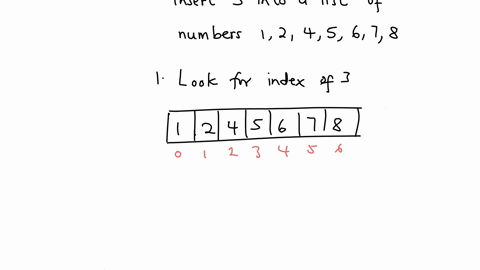 insert 3 into a list of
numbers 1, 2, 4, 5, 6, 7, 8
1. Look for index of 3
1 2 4 5 6 7 8
0 1 2 3 4 5 6